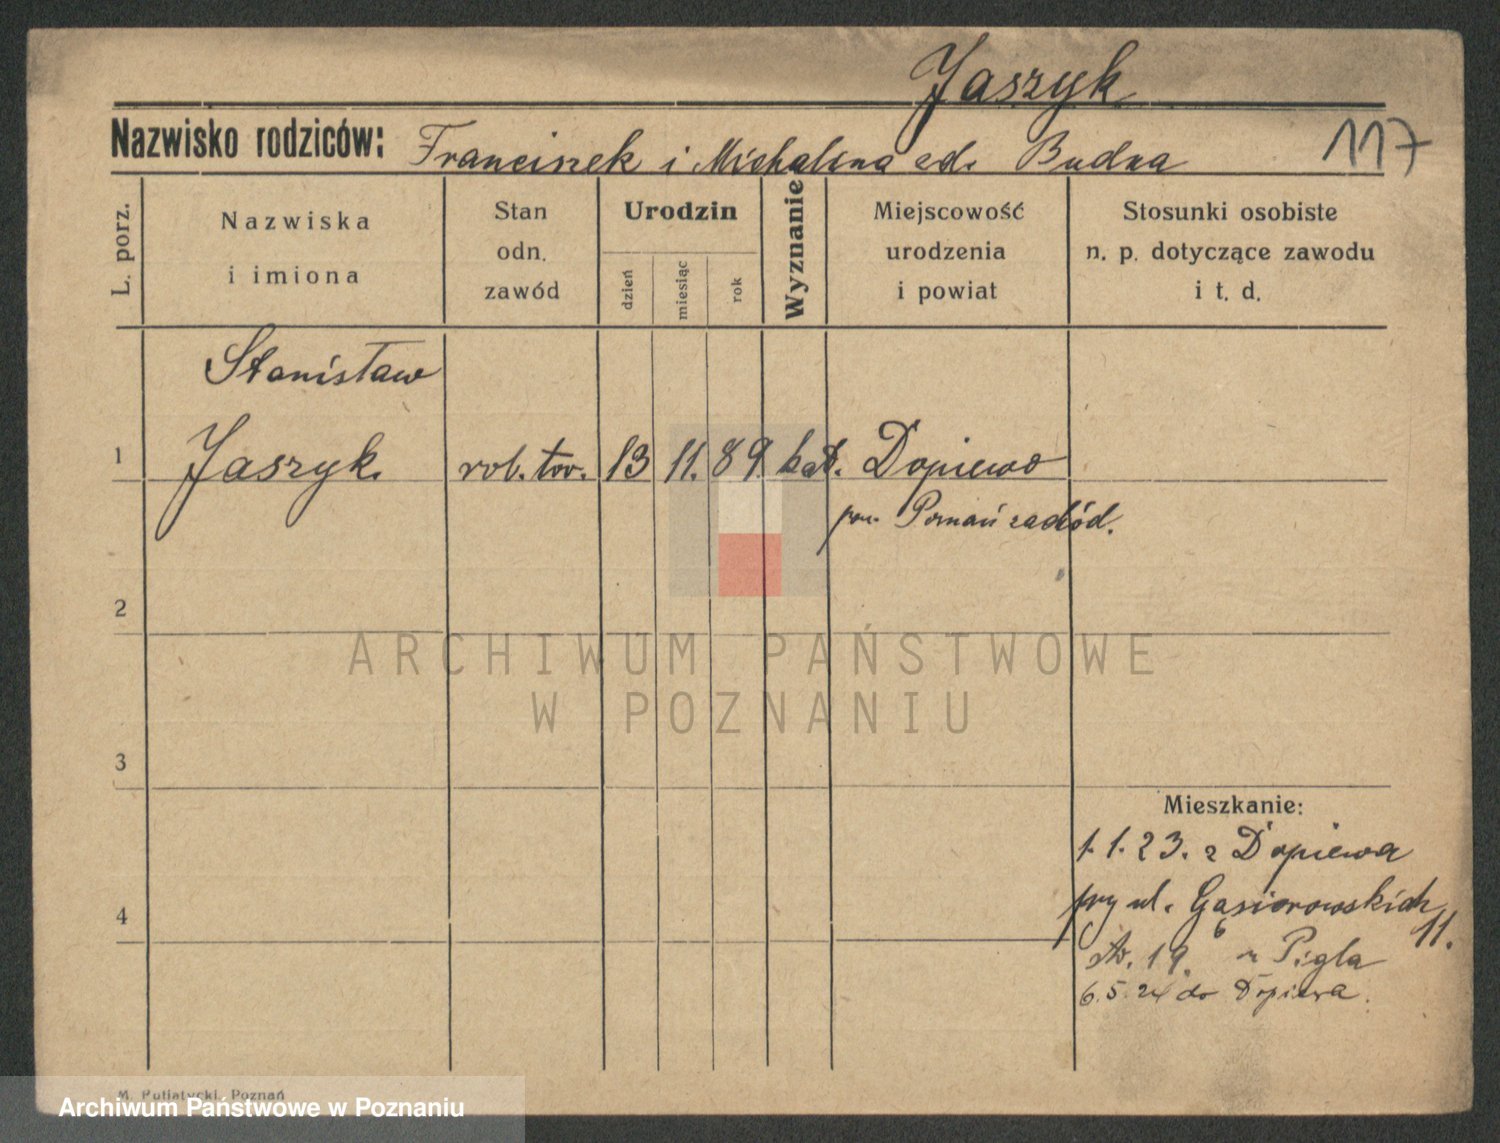 Jaszyk
Nazwisko rodziców: Franciszek i Michalina Budna
117
L. porz.
Nazwiska
i imiona
Stan
odn.
zawód
Urodzin
dzień
miesiąc
rok
Wyznanie
Miejscowość
urodzenia
i powiat
Stosunki osobiste
n. p. dotyczące zawodu
i t. d.
Stanisław
1 Jaszyk. rob. tor. 13 11. 89. kat. Dopiewo
pow. Poznań zachód.
2
ARCHIWUM PAŃSTWOWE
W POZNANIU
3
Mieszkanie:
1.1.23. z Dopiewa
przy ul. Gąsiorowskich
11.
4
19. Pigla
6.5.24 do Dopiewa.
M. Putiatycki, Poznań
Archiwum Państwowe w Poznaniu